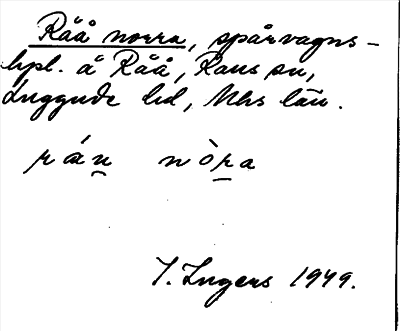 Råå norra, spårvagns-
hpl. å Råå, Raus sn,
Luggude hd, Mhs län.
rán nòra
I. Ingers 1949.